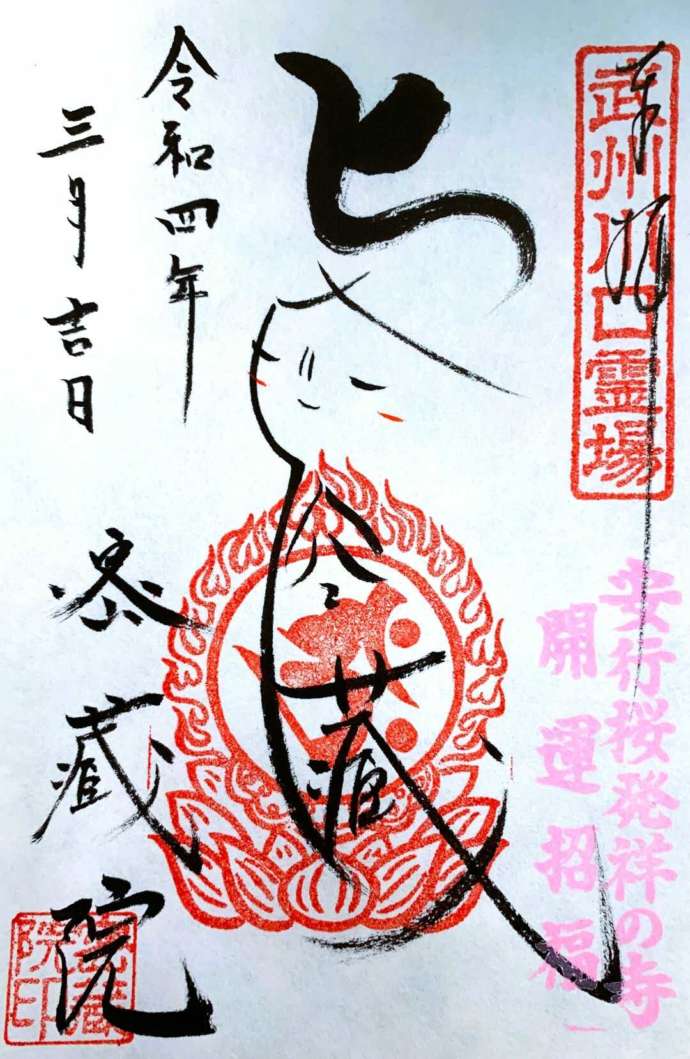 奉拝
武州川口霊場
安行桜発祥の寺
開運招福
蔵
令和四年
三月吉日
密蔵院
密蔵院印